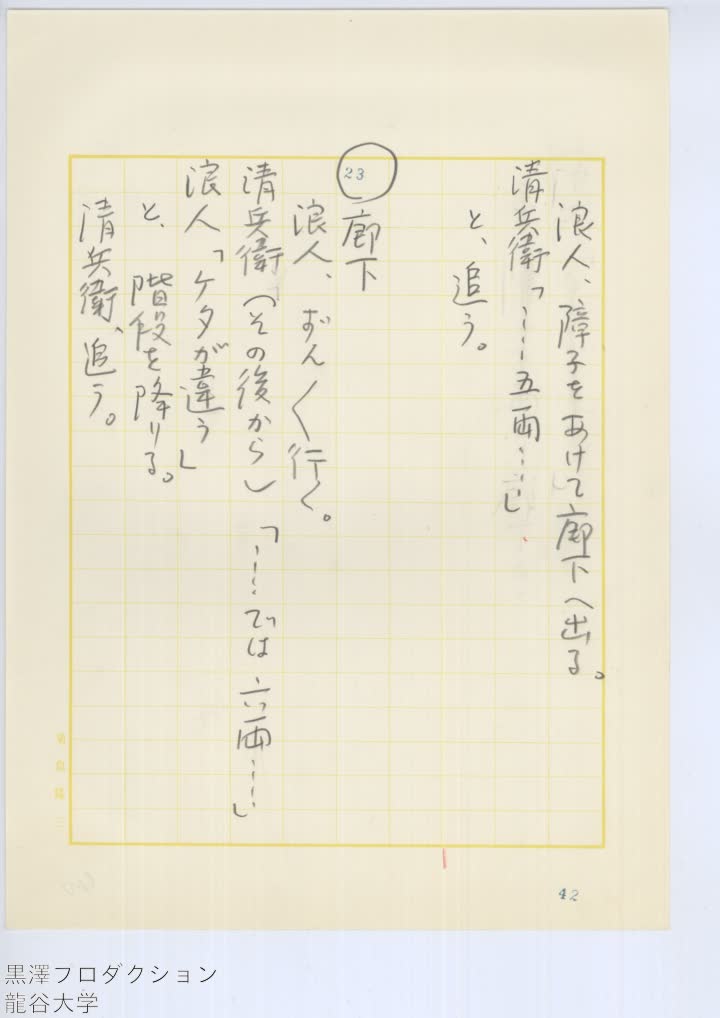 浪人、障子をあけて廊下へ出る。
清兵衛「……五両……」
と、追う。
23
廊下
浪人、ずん〱行く。
清兵衛(その後から)「……では六両……」
浪人「ケタが違う」
と、階段を降りる。
清兵衛、追う。
42
黒澤プロダクション
龍谷大学